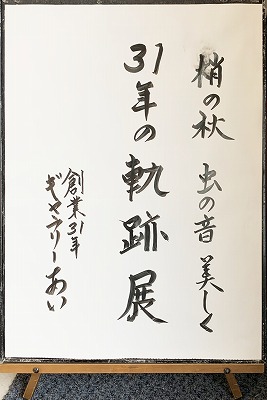 梢の秋 虫の音 美しく
31年の軌跡展
創業31年
ぎゃらりーあい